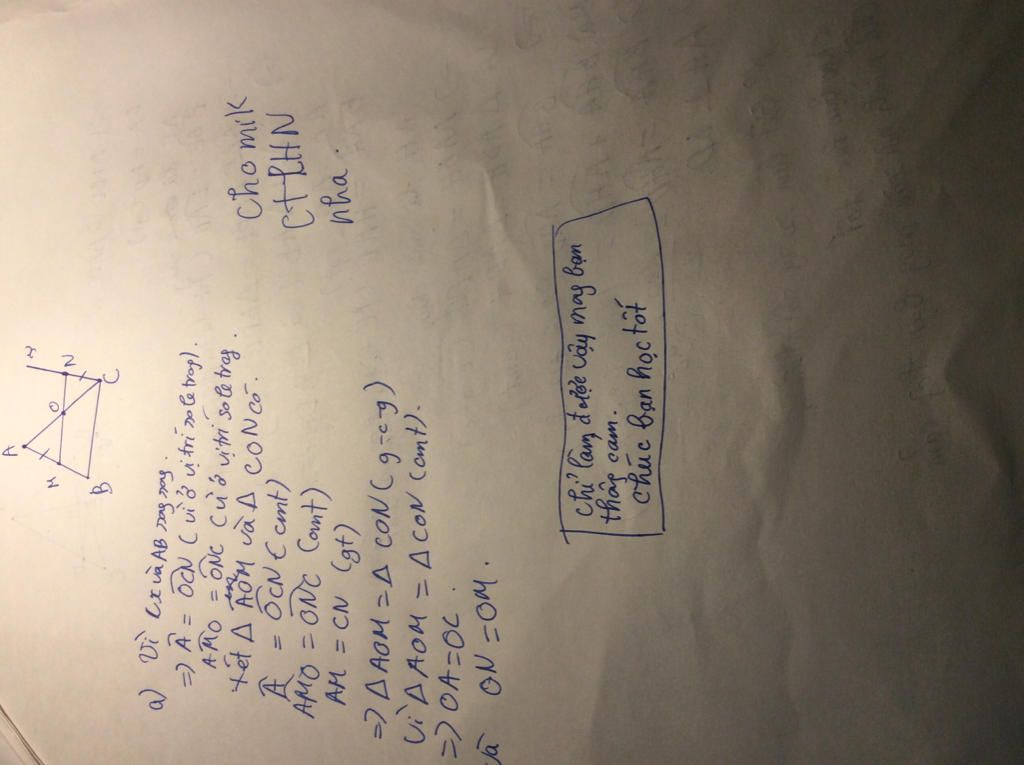 A
x
M
O
N
B
C
a) Vì Cx và AB song song.
=> Â = OCN (vì ở vị trí so le trog).
AMO = ONC (vì ở vị trí so le trog.
Xét Δ AOM và Δ CON có.
Â = OCN (cmt)
AMO = ONC (cmt)
AM = CN (gt)
=> Δ AOM = Δ CON (g-c-g)
Vì Δ AOM = Δ CON (cmt).
=> OA = OC.
và ON = OM.
Cho mik
CTLHN
nha.
Chỉ làm được vậy mog bạn
thôg cảm.
Chúc bạn học tốt